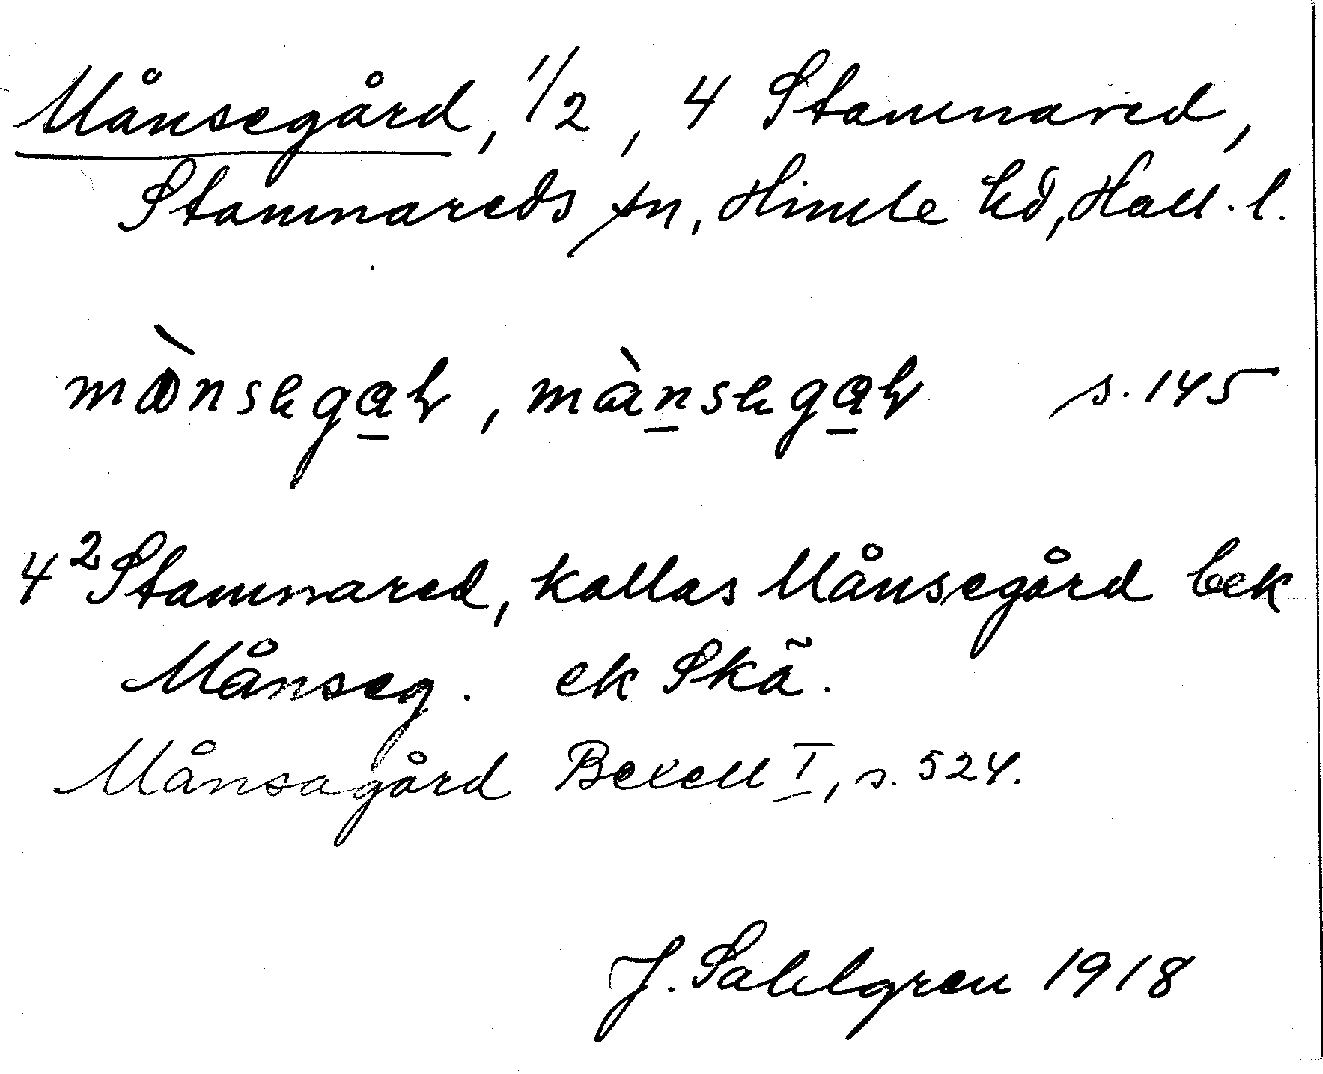 Månsegård, 1/2, 4 Stamnared,
Stamnareds sn, Himle hd, Hall. l.
s. 145
4² Stamnared, kallas Månsegård bek
Månseg. ek Skã.
Månsagård Bexell I, s. 524.
J. Sahlgren 1918